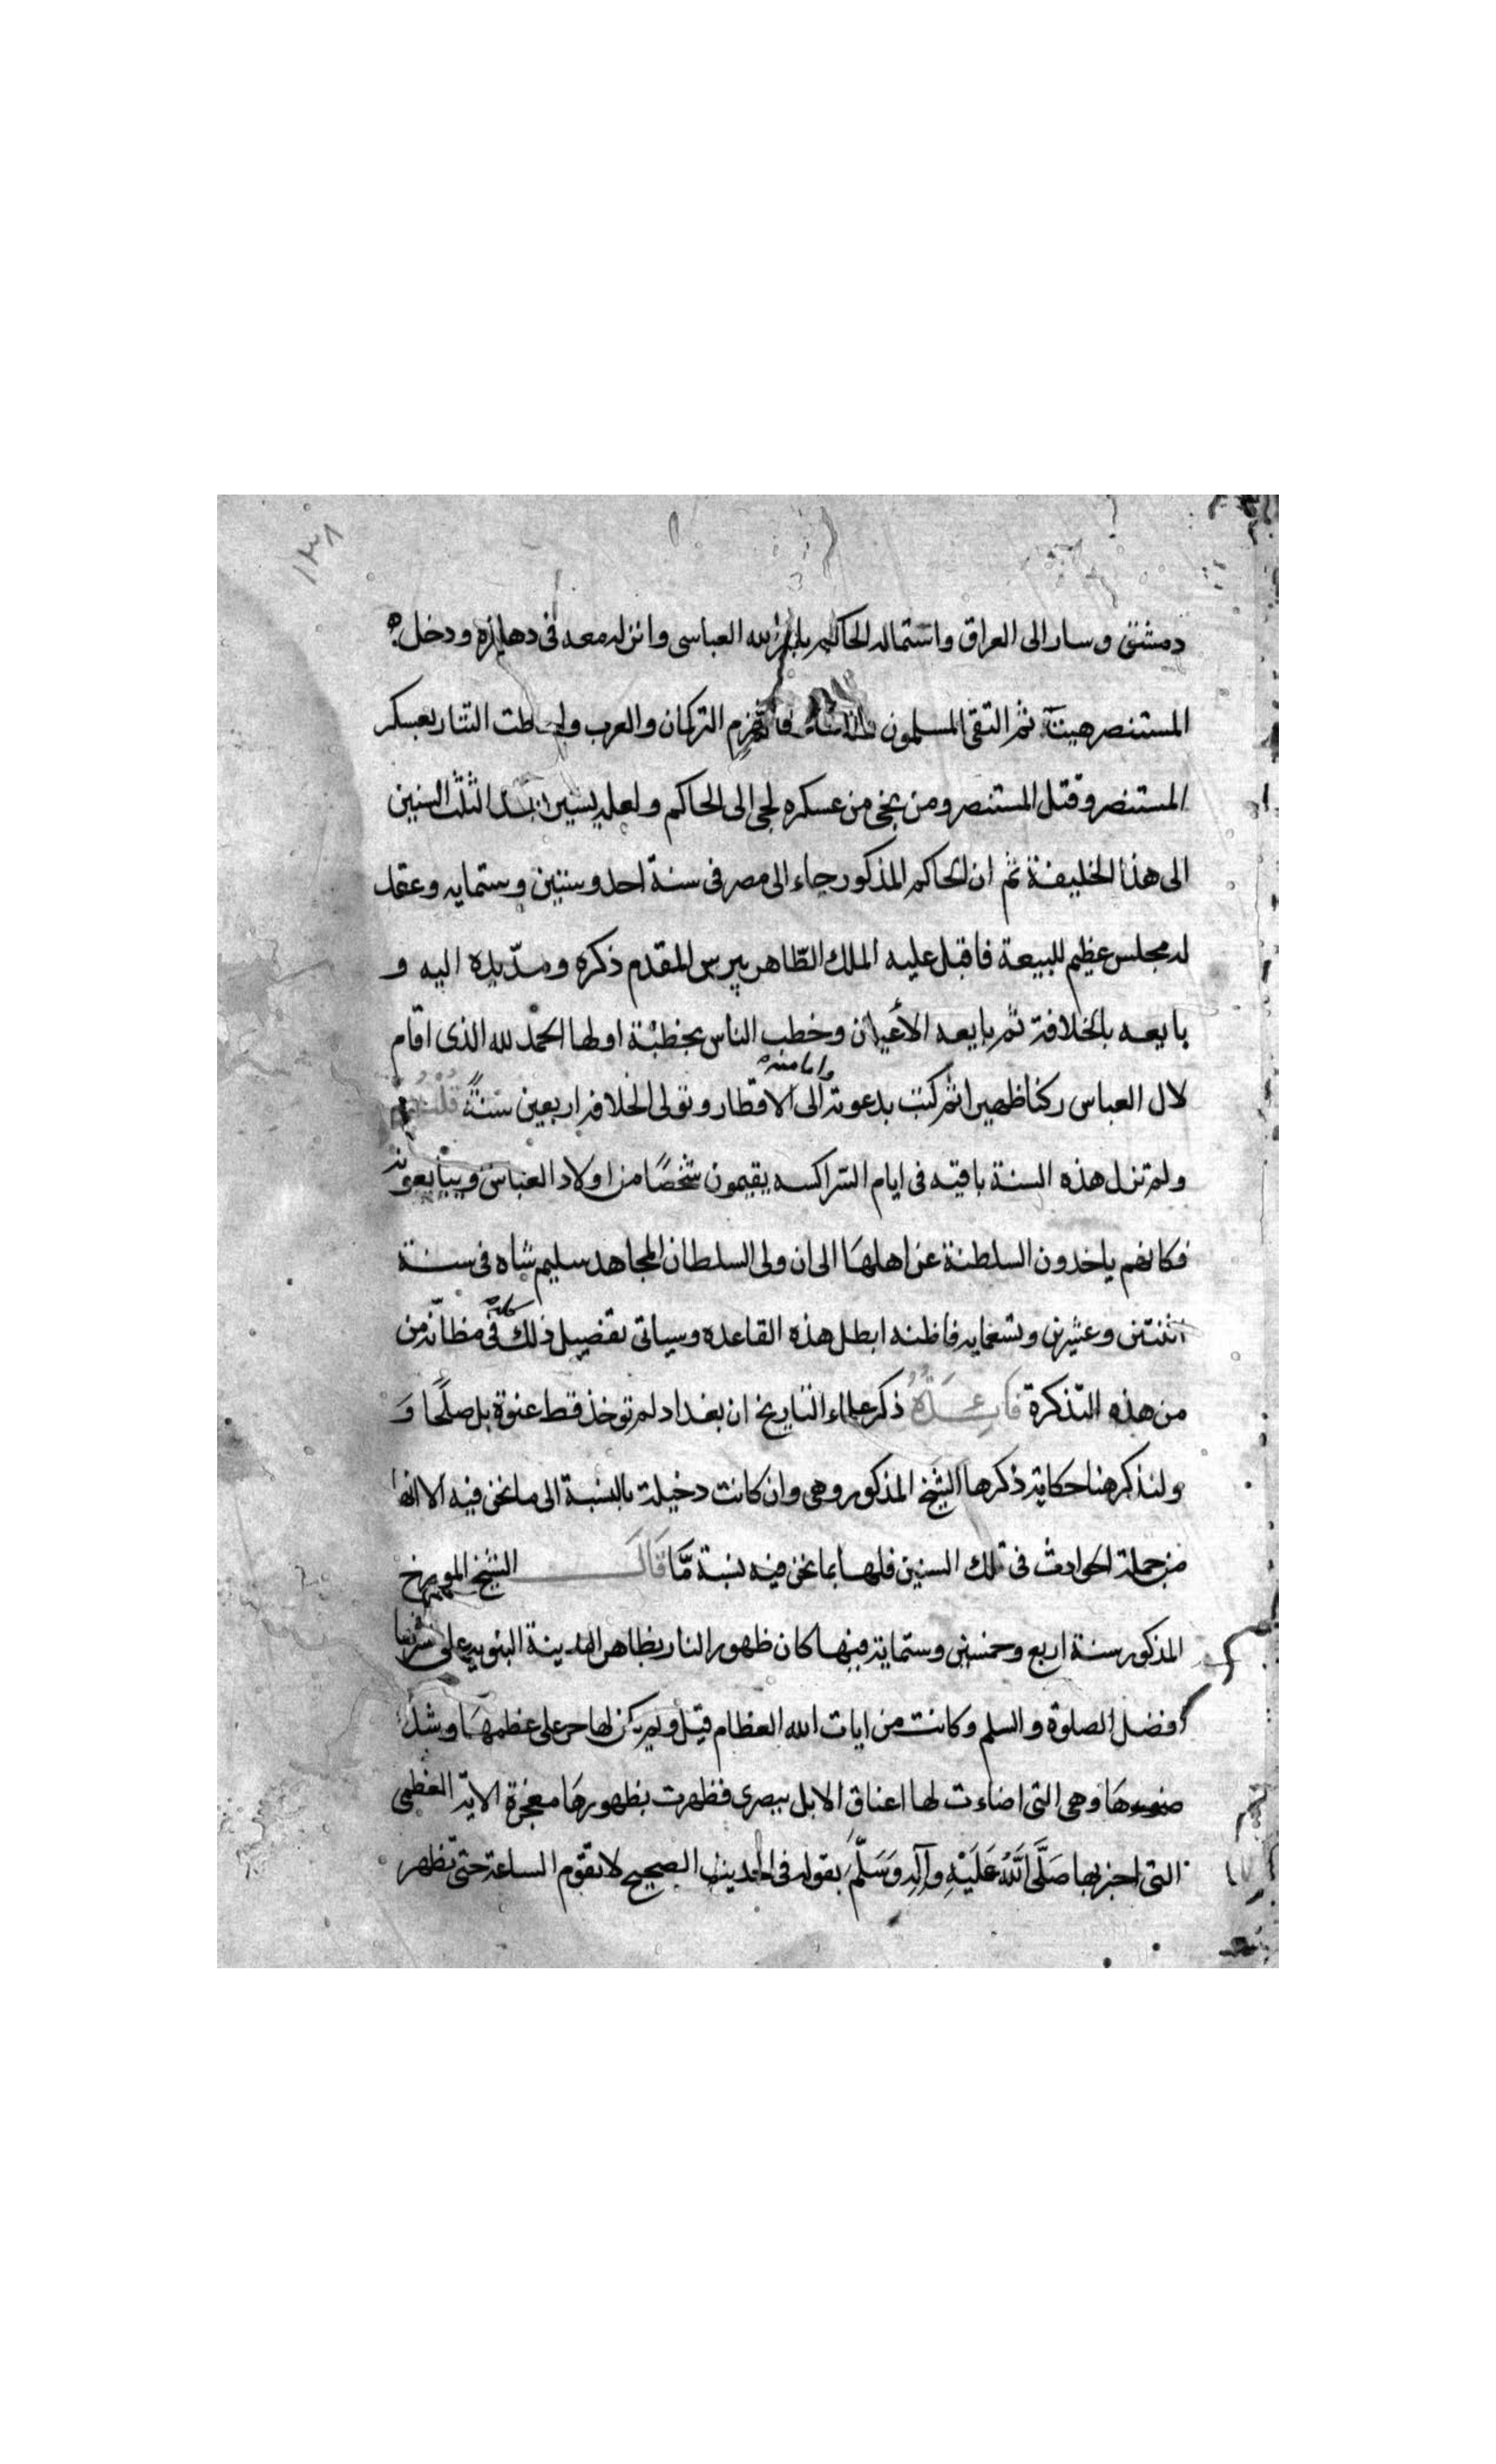 ١٣٨
دمشق وسار الى العراق واستماله الحاكم بامر الله العباسى وانزله معه فى دهليزه ودخل
المستنصر هيت ثم التقى المسلمون فانهزم التركمان والعرب واحاطت التتار بعسكر
المستنصر وقتل المستنصر ومن نجى من عسكره لجى الى الحاكم ولعله يسير الثلث السنين
الى هذا الخليفة ثم ان الحاكم المذكور جاء الى مصر فى سنة احد وستين وستمايه وعقد
له مجلس عظيم للبيعة فاقبل عليه الملك الظاهر بيبرس المقدم ذكره ومدّ يده اليه و
بايعه بالخلافة ثم بايعه الأعيان وخطب الناس بخطبة اولها الحمد لله الذى اقام
لال العباس ركنا ظهيرا ثم كتب بدعوته وامامته الى الاقطار وتولى الخلافه اربعين سنةً قلت
ولم تزل هذه السنة باقيه فى ايام الشراكسه يقيمون شخصًا من اولاد العباس ويبايعونه
فكانهم ياخدون السلطنة عن اهلهَا الى ان ولى السلطان المجاهد سليم شاه فى سنة
اثنتين وعشرين وتسعمايه فاظنه ابطل هذه القاعده وسياتى تفصيل ذلك كله فى مظانّه من
من هذه التذكرة فَايِدَةٌ ذكر علماء التاريخ ان بغداد لم توخذ قط عنوة بل صلحًا وَ
ولنذكر هنا حكاية ذكرها الشيخ المذكور وهى وان كانت دخيلة بالنسبة الى ما نحن فيه الا انها
من جملة الحوادث فى تلك السنين فلها بما نحن فيه نسبة مَّا قَالَ الشيخ المورخ
المذكور سنة اربع وخمسين وستماية فيها كان ظهور النار بظاهر المدينة النبويه على مشرفها
افضل الصلوة والسلم وكانت من ايات الله العظام قيل ولم يكن لها حر على عظمهَا وشدة
ضوءهَا وهى التى اضاءت لها اعناق الابل ببصرى فظهرت بظهورهَا معجزة الاية العظمى
التى اخبر بها صَلَّى اللَّهُ عَلَيْهِ وآلِهِ وَسَلَّمَ بقوله فى الحديث الصحيح لا تقوم الساعة حتى تظهر